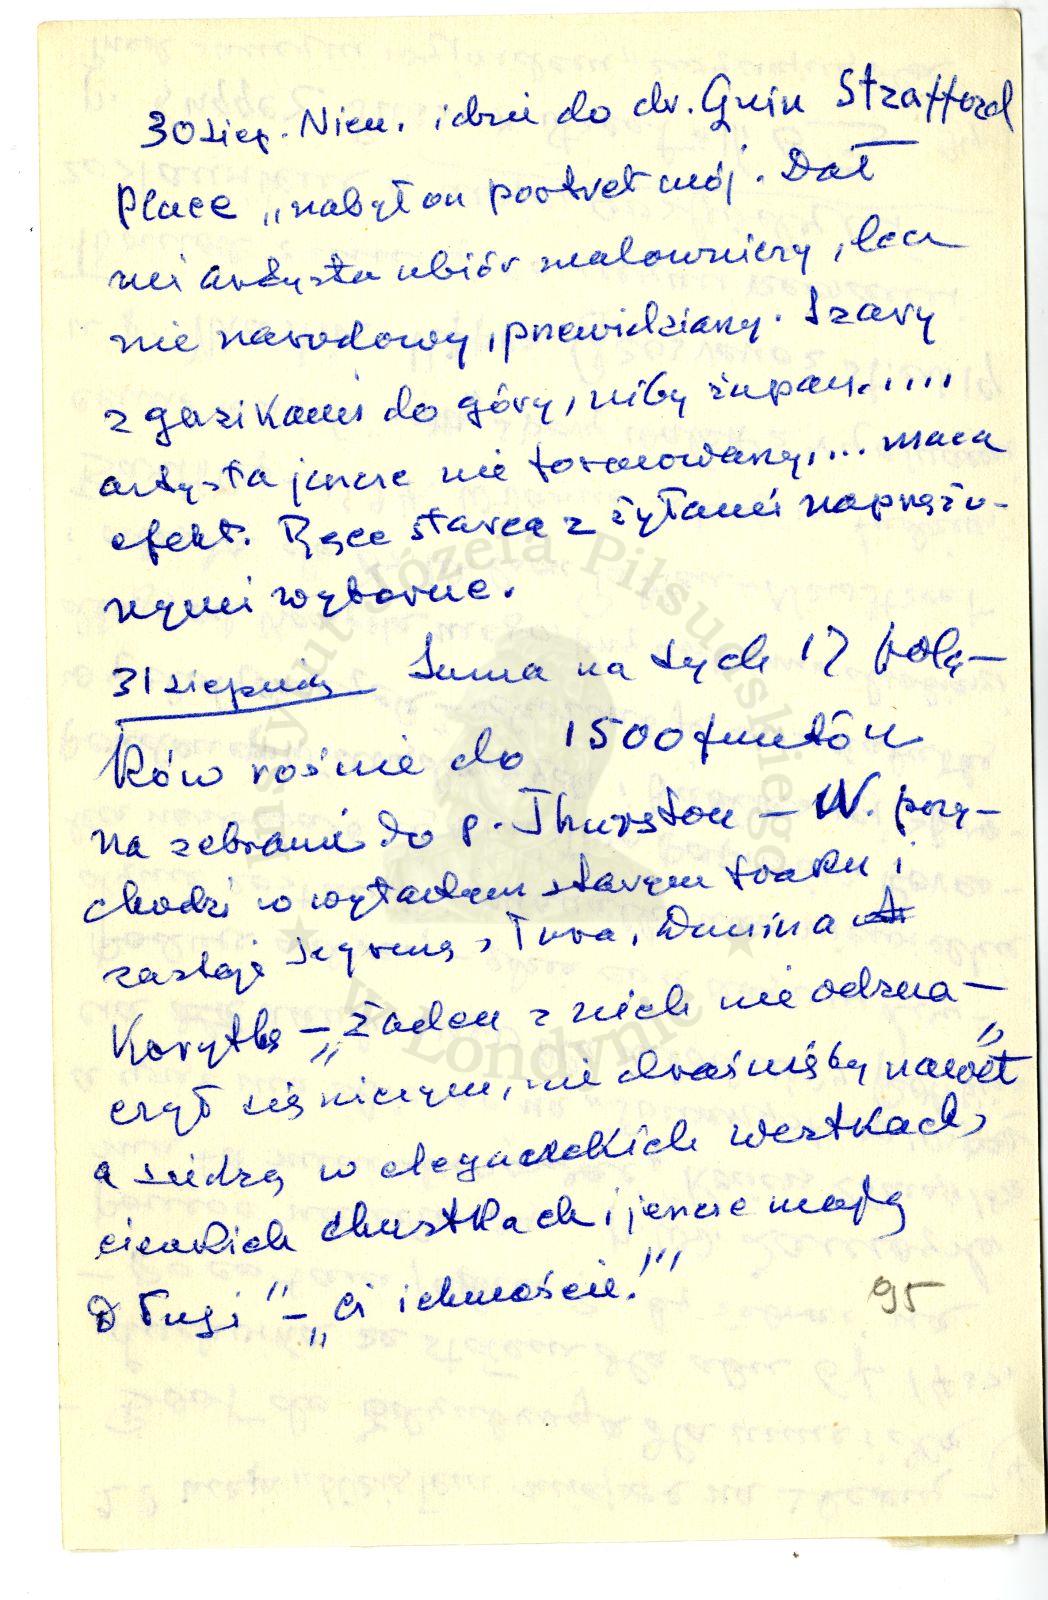 30 sierp. Niem. idzie do dr. Gwin Strafford
Place „nabył on portret mój. Dał
mi artysta ubiór malowniczy, lecz
nie narodowy, przewidziany. Szary
z guzikami do góry, niby żupan.....
artysta jeszcze nie formowany,... maca
efekt. Ręce starca z żyłami naprężo-
nymi wyborne.
31 sierpnia Suma na tych 17 Pola-
ków rośnie do 1500 funtów
na zebranie do p. Thurston – N. przy-
chodzi w wytartym starym fraku i
zastaje Szyrmę, Tura, Dunina
Korytkę – „Żaden z nich nie odzna-
czył się niczym, nie draśnięty nawet"
a siedzą w eleganckich westkach,
cienkich chustkach i jeszcze mają
Długi" – „Ci ichmoście!"'
95
Instytut Józefa Piłsudskiego
w Londynie